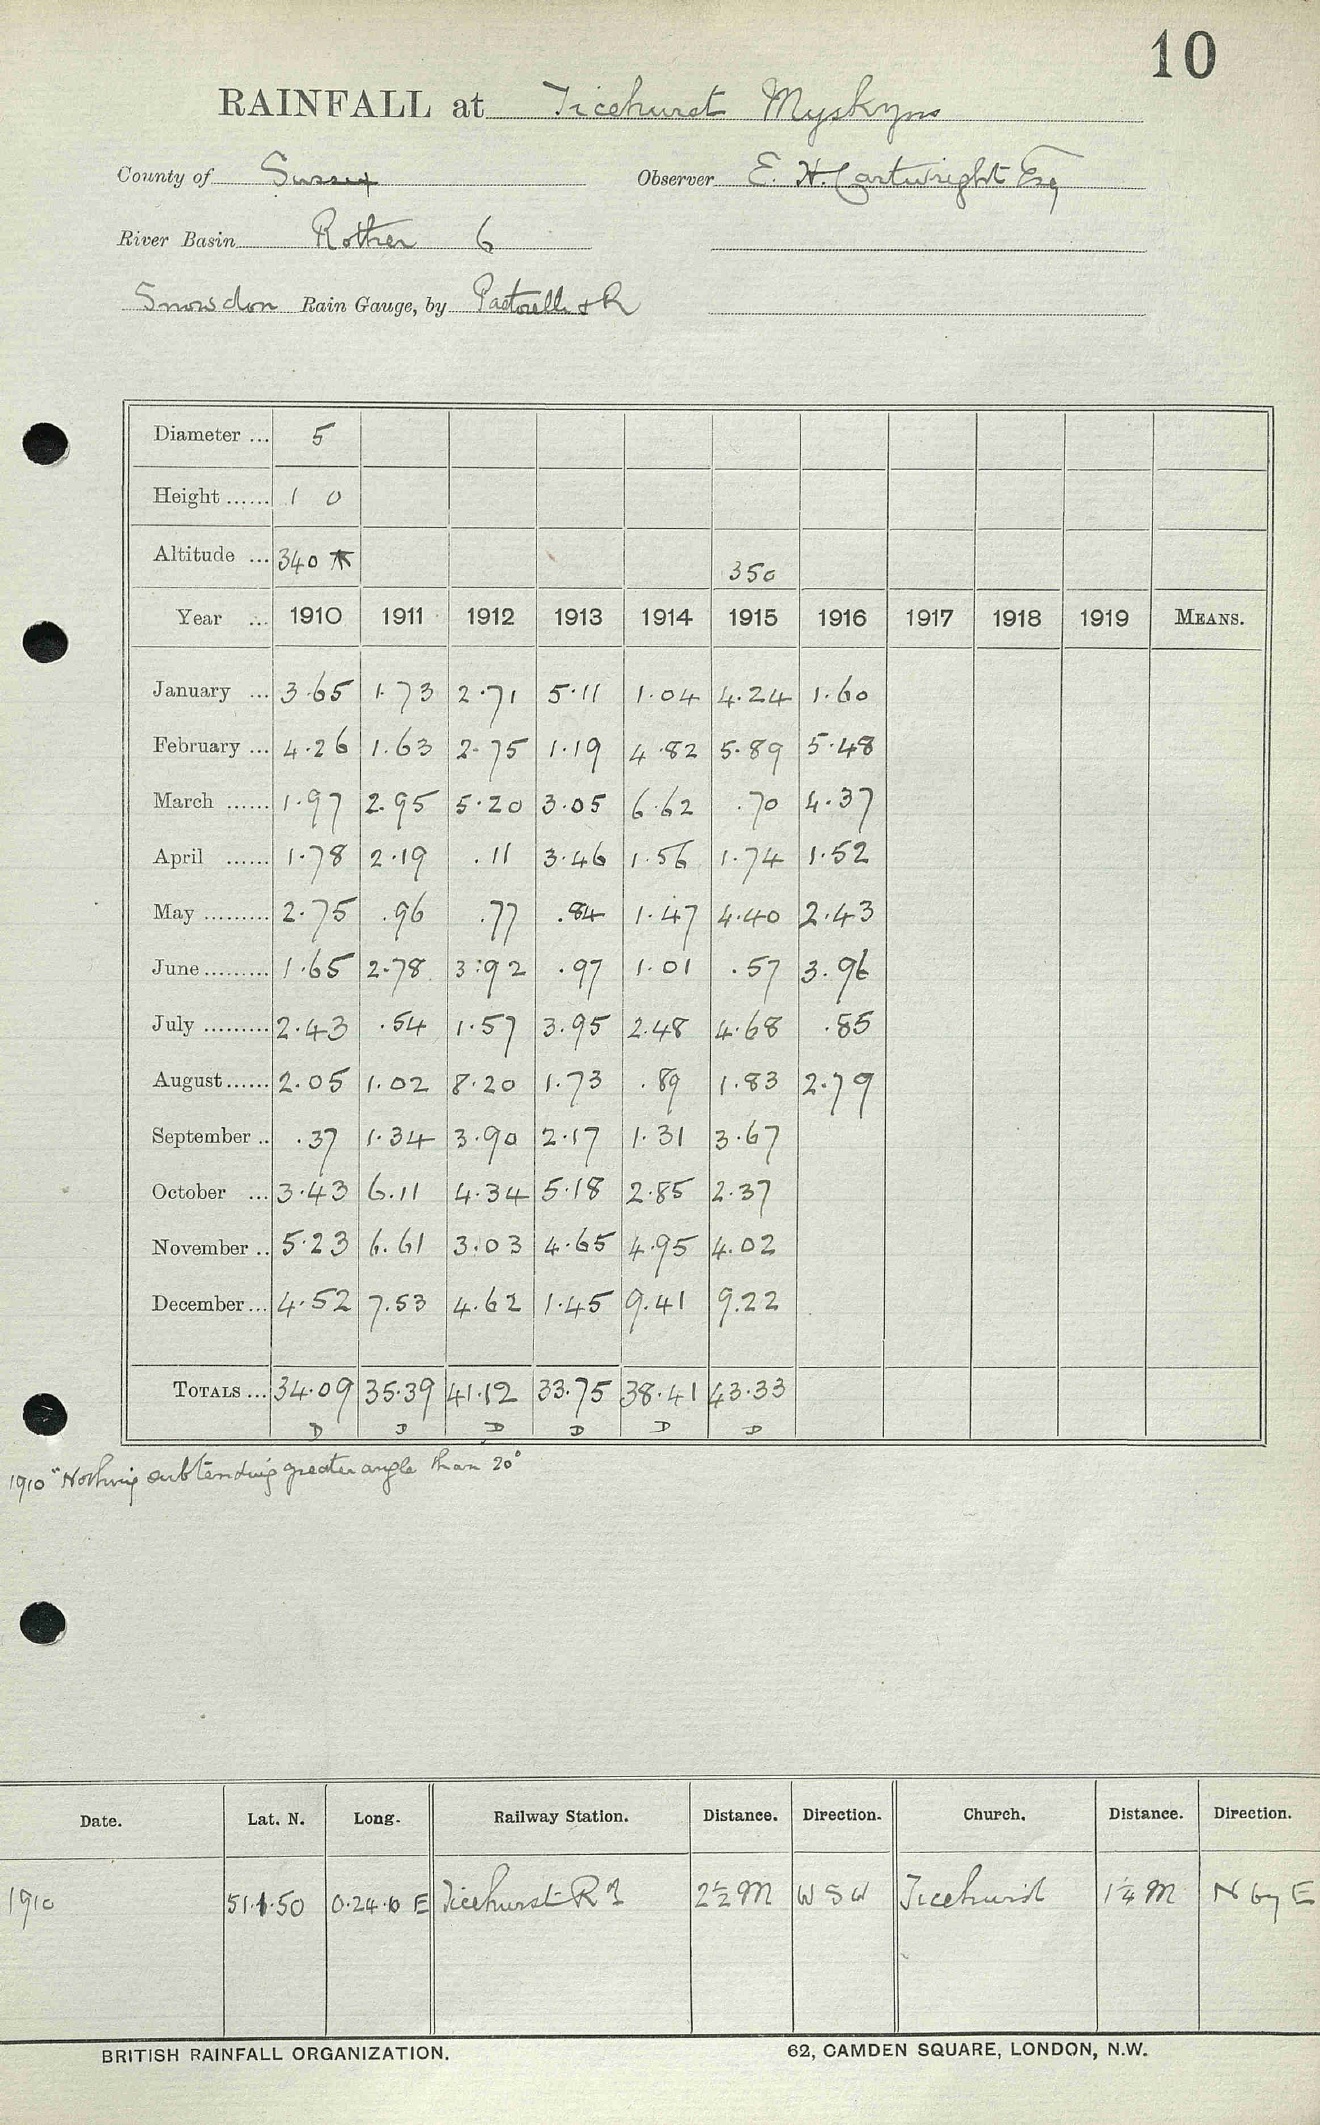 10
RAINFALL at Ticehurst Myskyns
County of Sussex Observer E. H. Cartwright Esq
River Basin Rother 6
Snowdon Rain Gauge, by Pastorelli & R
Diameter ... 5
Height ...... 1 0
Altitude ... 340 350
Year ... 1910 1911 1912 1913 1914 1915 1916 1917 1918 1919 MEANS.
January ... 3.65 1.73 2.71 5.11 1.04 4.24 1.60
February ... 4.26 1.63 2.75 1.19 4.82 5.89 5.48
March ...... 1.97 2.95 5.20 3.05 6.62 .70 4.37
April ...... 1.78 2.19 .11 3.46 1.56 1.74 1.52
May ......... 2.75 .96 .77 .84 1.47 4.40 2.43
June ......... 1.65 2.78 3.92 .97 1.01 .57 3.96
July ......... 2.43 .54 1.57 3.95 2.48 4.68 .85
August ...... 2.05 1.02 8.20 1.73 .89 1.83 2.79
September .. .37 1.34 3.90 2.17 1.31 3.67
October ... 3.43 6.11 4.34 5.18 2.85 2.37
November .. 5.23 6.61 3.03 4.65 4.95 4.02
December ... 4.52 7.53 4.62 1.45 9.41 9.22
TOTALS ... 34.09 35.39 41.12 33.75 38.41 43.33
D D D D D D
1910 "Nothing subtending greater angle than 20°
Date. Lat. N. Long. Railway Station. Distance. Direction. Church. Distance. Direction.
1910 51.1.50 0.24.0 E Ticehurst Rd 2½ M W S W Ticehurst 1¼ M N by E
BRITISH RAINFALL ORGANIZATION. 62, CAMDEN SQUARE, LONDON, N.W.